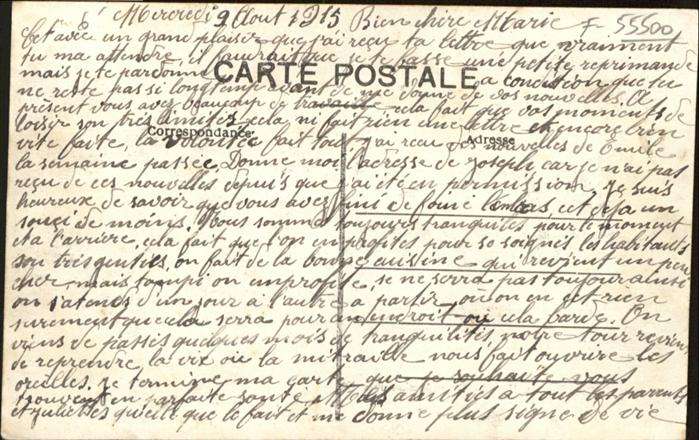 Mercredi 9 Aout 1915 Bien chère Marie F 55500
Cet avec un grand plaisir que j'ai reçu ta lettre que vraiment
tu ma attendre, il faudrait que je te passe une petite reprimande
mais je te pardonne a condition que tu
CARTE POSTALE
ne reste pas si longtemp avant de me donne de vos nouvelles. A
présent vous avez beaucoup de travaille cela fait que vos moments de
loisir son très limités cela ni fait rien une lettre et encore bien
Correspondance
Adresse
vite faite, la volontée fait tout j'ai reçu des nouvelles de Emile
la semaine passée. Donne moi l'adresse de Joseph car je n'ai pas
reçu de ces nouvelles depuis que j'ai été en permission. Je suis
heureux de savoir que vous avez fini de foins cet deja un
souçi de moins. Nous somme toujours tranquiles pour le moment
et a l'arrière, cela fait que l'on en profites pour so soigner les habitants
son très gentils, on fait de la bonne cuisine qui revient un peu
cher, mais tampi on en profite, se ne serra pas toujours ainsi
on s'atend d'un jour a l'autre a partir, ou on en et rien
surement que cela serra pour an endroit ou cela barde. On
viens de passés quelques mois de tranquilités, notre tour revien
de reprendre la vix ou la mitraille nous fait ouvrire les
oreilles. Je termine ma carte que je souhaite vous
trouvent en parfaite santé Mes amitiés a tout les parents
et Juliettes qu'elle que le fait et me donne plus signe de vie